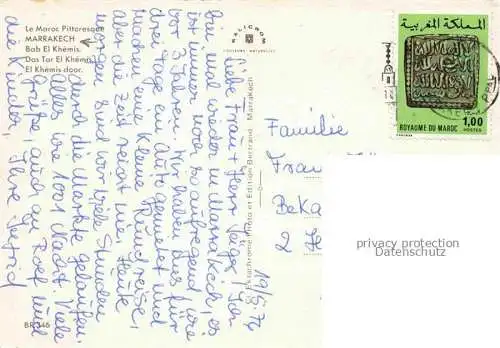 Le Maroc Pittoresque
MARRAKECH
Bab El Khémis.
Das Tor El Khémis
El Khémis door.
KALICROM
COULEURS NATURELLES
19/5.76
Liebe Frau + Herr Jäger! Jan
und wieder in Marrakech, es
ist immer noch so aufregend wie
vor 3 Jahren. Wir haben uns für
drei Tage ein Auto gemietet und
machen eine kleine Rundreise,
aber die Zeit reicht nie. Heute
morgen sind wir viele Stunden
durch die Märkte gelaufen.
Alles wie 1001 Nacht. Viele
Grüße, auch an Rolf und
die Kinder, Ihre
Ektachrome Photo et Edition Bertrand - Marrakech
Familie
Fran
2
BR 346
المملكة المغربية
1,00
ROYAUME DU MAROC
POSTES
privacy protection
Datenschutz